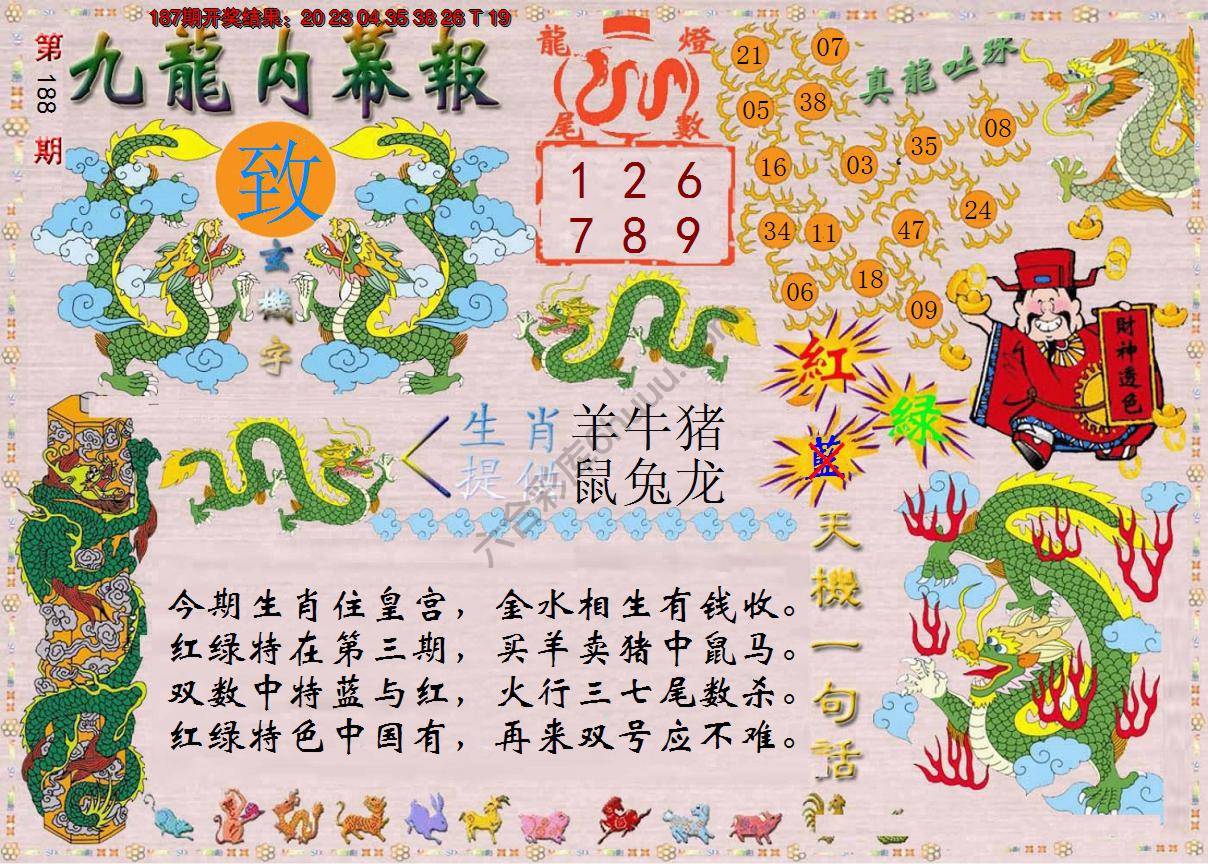 187期开奖结果：20 23 04 35 38 26 T 19
第188期
九龍内幕報
致
玄機字
龍燈尾數
1 2 6
7 8 9
真龍吐珠
21 07
05 38
16 03 35 08
34 11 47 24
06 18 09
財神透色
紅
綠
藍
生肖提供
羊牛猪
鼠兔龙
天機一句話
今期生肖住皇宫，金水相生有钱收。
红绿特在第三期，买羊卖猪中鼠马。
双数中特蓝与红，火行三七尾数杀。
红绿特色中国有，再来双号应不难。